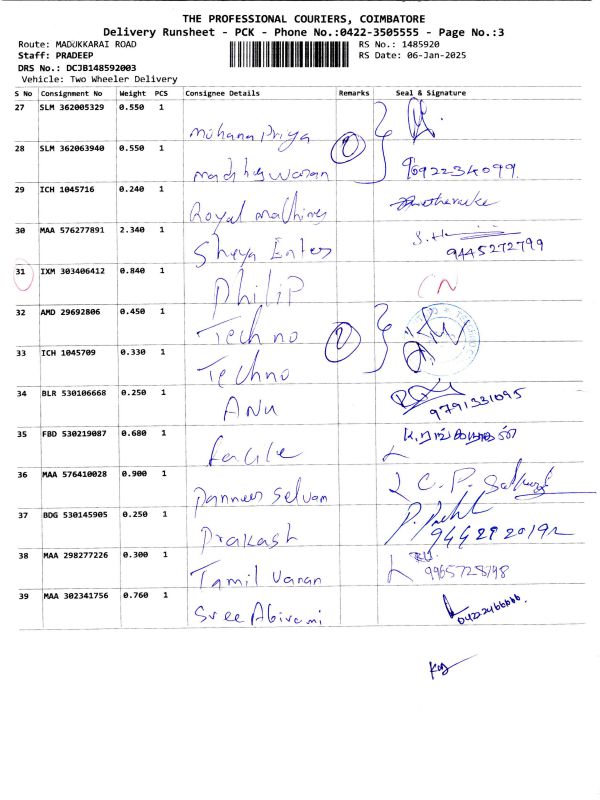 THE PROFESSIONAL COURIERS, COIMBATORE
Delivery Runsheet - PCK - Phone No.:0422-3505555 - Page No.:3
Route: MADUKKARAI ROAD RS No.: 1485920
Staff: PRADEEP RS Date: 06-Jan-2025
DRS No.: DCJB148592003
Vehicle: Two Wheeler Delivery
S No Consignment No Weight PCS Consignee Details Remarks Seal & Signature
27 SLM 362005329 0.550 1 Mohana Priya
28 SLM 362063940 0.550 1 2 9692234099
29 ICH 1045716 0.240 1 Royal Machines
30 MAA 576277891 2.340 1 Shreya Enter 9445272799
31 IXM 303406412 0.840 1 Philip CN
32 AMD 29692806 0.450 1 Techno
33 ICH 1045709 0.330 1 Techno 2
34 BLR 530106668 0.250 1 Anu 9791331095
35 FBD 530219087 0.680 1 Facile
36 MAA 576410028 0.900 1 Panneer Selvam
37 BDG 530145905 0.250 1 Prakash
38 MAA 298277226 0.300 1 Tamil Vanan
39 MAA 302341756 0.760 1 Sree Abirami 04222466666